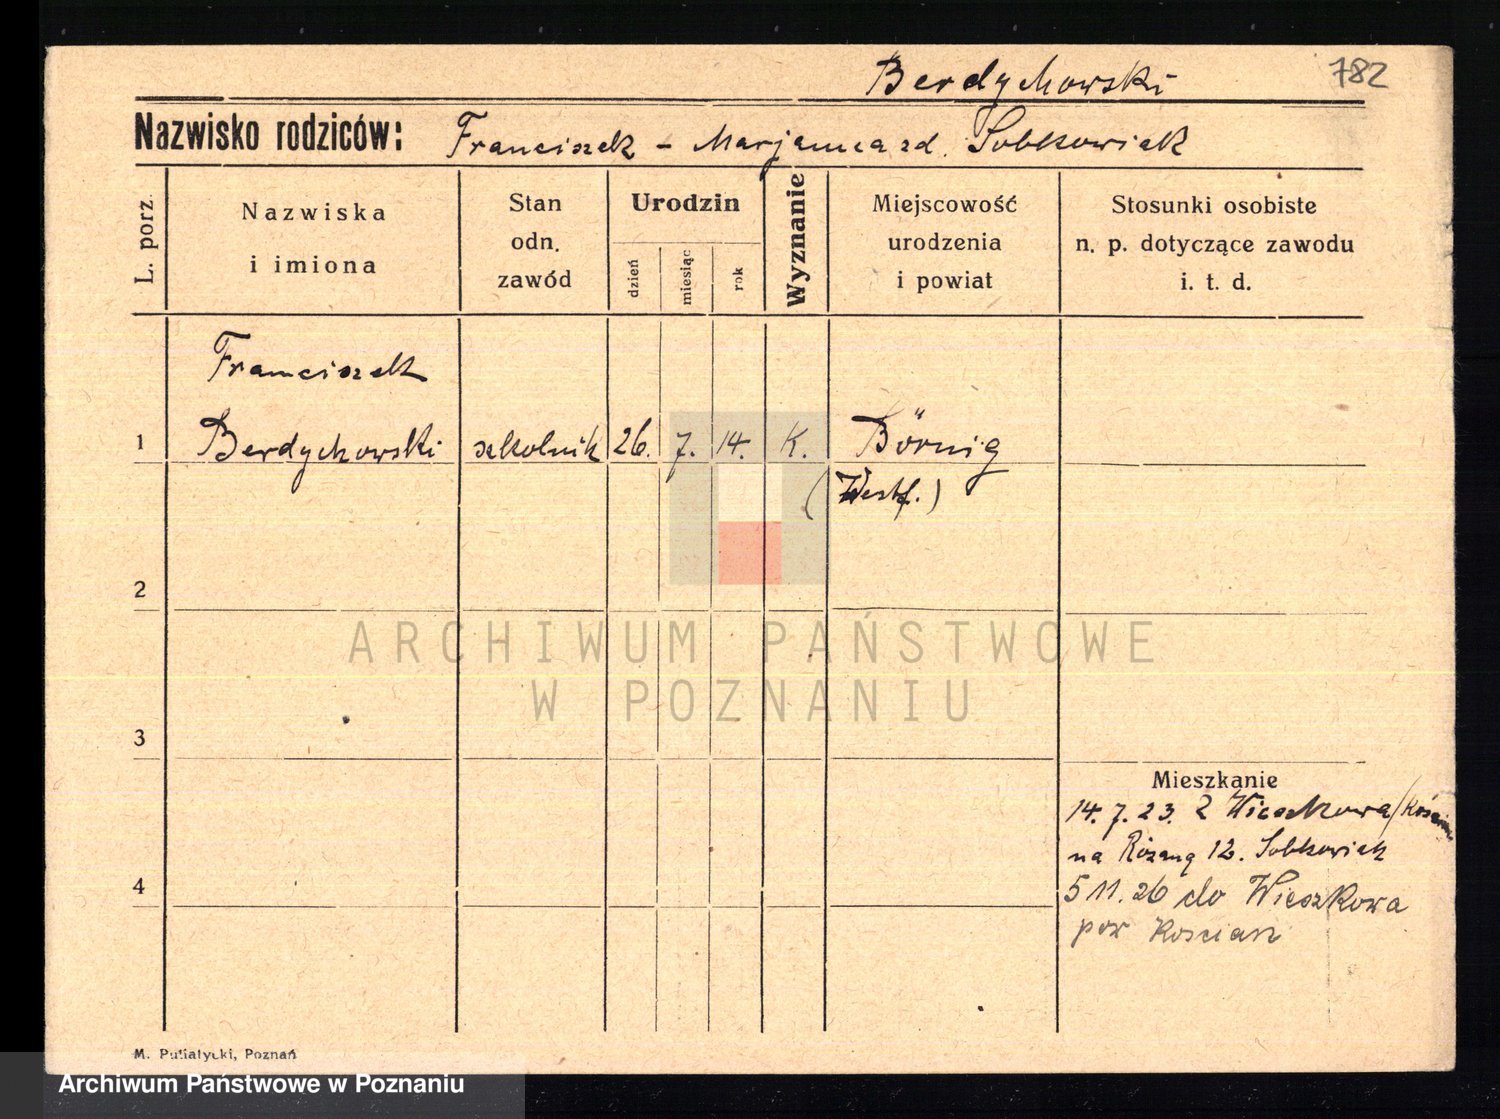 Berdychowski
782
Nazwisko rodziców: Franciszek - Marjanna zd. Sobkowiak
L. porz.
Nazwiska
i imiona
Stan
odn.
zawód
Urodzin
dzień
miesiąc
rok
Wyznanie
Miejscowość
urodzenia
i powiat
Stosunki osobiste
n. p. dotyczące zawodu
i. t. d.
Franciszek
1 Berdychowski szkolnik 26. 7. 14. K. Börnig
(Westf.)
2
ARCHIWUM PAŃSTWOWE
W POZNANIU
3
Mieszkanie
14. 7. 23. z Wieszkowa/Kościan
na Różaną 12. Sobkowiak
4
5 11. 26 do Wieszkowa
pow Kościan
M. Putiatycki, Poznań
Archiwum Państwowe w Poznaniu